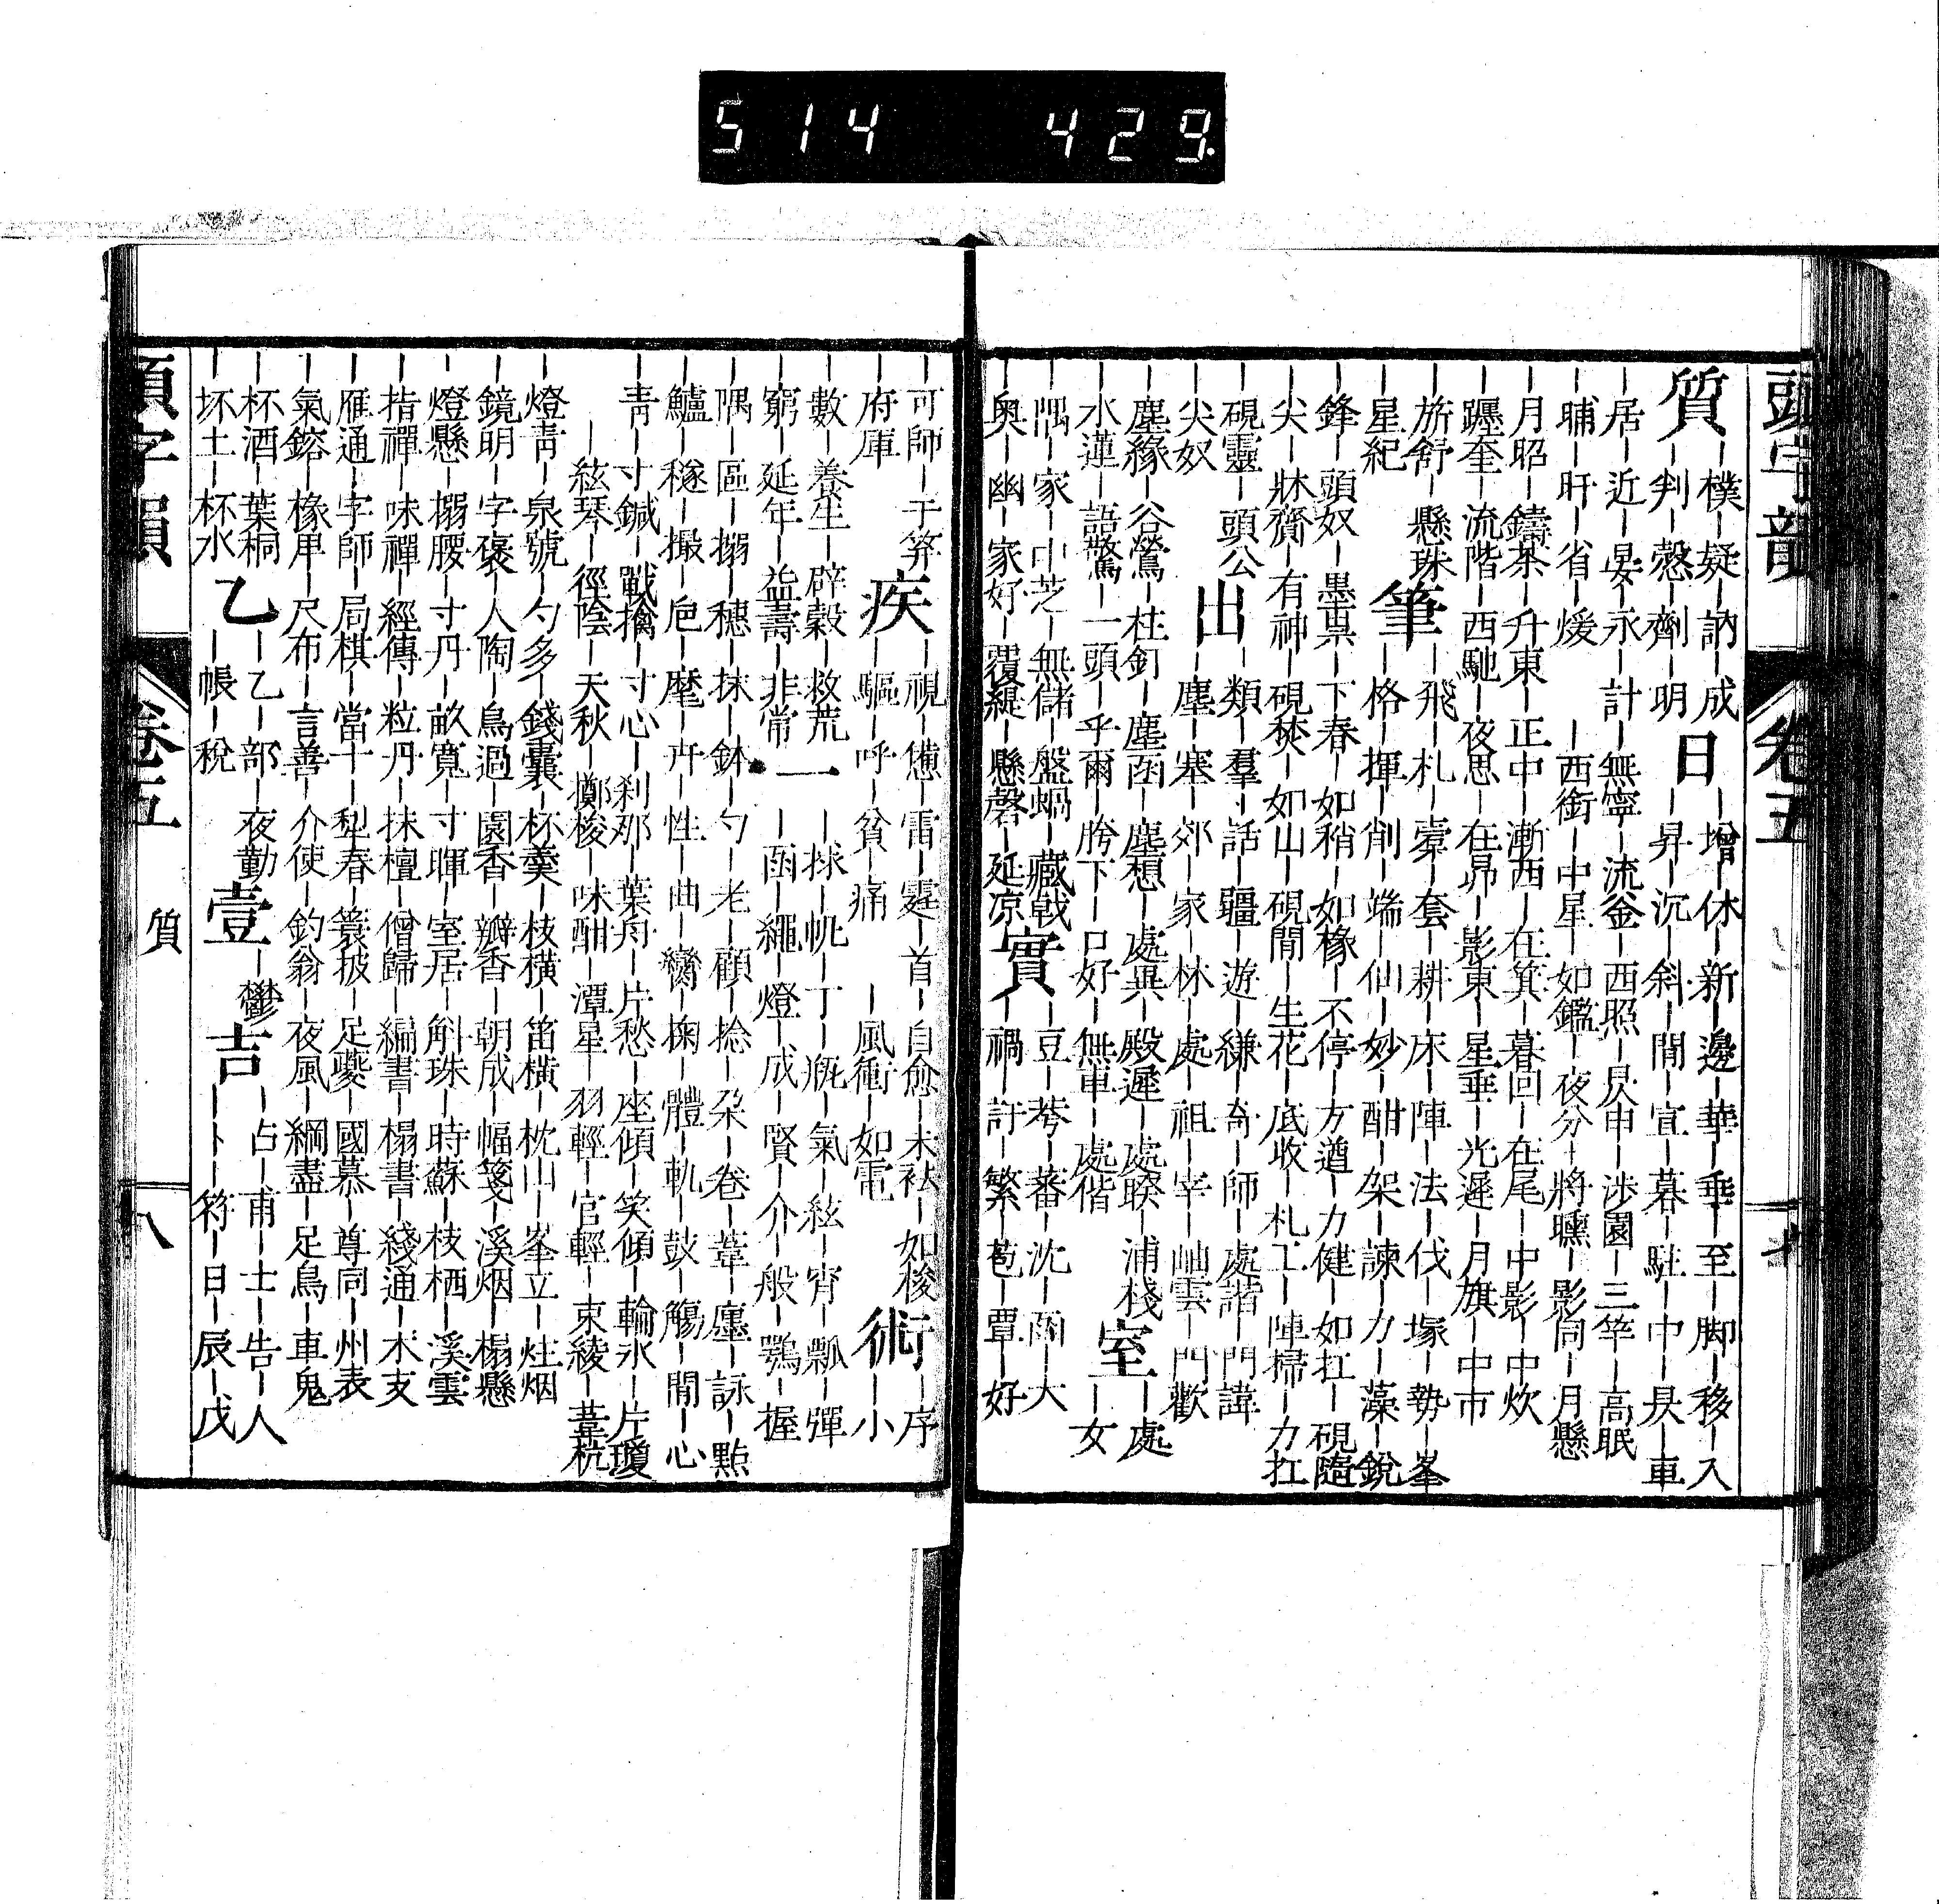 514 429.
頭字韻 卷五
質｜樸｜疑｜訥｜成
｜判｜愨｜劑｜明
日｜增｜休｜新｜邊｜華｜垂｜至｜脚｜移｜入
｜昇｜沉｜斜｜閒｜宣｜暮｜駐｜中｜昃｜車
｜居｜近｜晏｜永｜計｜無寧｜流金｜西照｜昃申｜涉園｜三竿｜高眠
｜晡｜旰｜省｜煖｜西銜｜中星｜如鑑｜夜分｜將曛｜影同｜月懸
｜月昭｜鑄茶｜升東｜正中｜漸西｜在箕｜暮回｜在尾｜中影｜中炊
｜躔奎｜流階｜西馳｜夜思｜在昴｜影東｜星垂｜光遲｜月旗｜中市
｜旂舒｜懸珠
｜星紀
筆｜飛｜札｜橐｜套｜耕｜床｜陣｜法｜伐｜塚｜勢｜峯
｜格｜揮｜削｜端｜仙｜妙｜酣｜架｜諫｜力｜藻｜銳
｜鋒｜頭奴｜墨杲｜下春｜如稍｜如椽｜不停｜方遒｜力健｜如扛｜硯隨
｜尖｜牀齎｜有神｜硯焚｜如山｜硯閒｜生花｜底收｜札工｜陣掃｜力扛
｜硯靈｜頭公
｜尖奴
出｜類｜羣｜話｜疆｜遊｜縑｜奇｜師｜處諧｜門諱
｜塵｜塞｜郊｜家｜林｜處｜祖｜宰｜岫雲｜門歡
｜塵緣｜谷鶯｜柱釘｜塵函｜塵想｜處異｜殿遲｜處暌｜浦棧
｜水蓮｜語驚｜一頭｜乎爾｜胯下｜口好｜無車｜處偕
室｜處
｜女
｜隅｜家｜中芝｜無儲｜盤蝸｜藏戟
｜奥｜幽｜家好｜覆緹｜懸磬｜延凉
實｜豆｜莠｜蕃｜沈｜函｜大
｜禍｜訏｜繁｜苞｜覃｜好
｜可師｜干筭
｜府庫
疾｜視｜憊｜雷｜霆｜首｜自愈｜未祛｜如梭
｜驅｜呼｜貧｜痛｜風衝｜如電
術｜序
｜小
｜數｜養生｜辟穀｜救荒
｜窮｜延年｜益壽｜非常
一｜捄｜帆｜丁｜旣｜氣｜絃｜宵｜瓢｜彈
｜函｜繩｜燈｜成｜賢｜介｜般｜鶚｜握
｜隅｜區｜搦｜穗｜抹｜鉢｜勺｜老｜顧｜捻｜朶｜卷｜葦｜廛｜詠｜點
｜鱸｜穟｜撮｜巵｜麾｜卉｜性｜曲｜臠｜掬｜體｜軌｜鼓｜觴｜閒｜心
｜靑｜寸鍼｜戰擒｜寸心｜刹那｜葉舟｜片愁｜座傾｜笑傾｜輪氷｜片瓊
｜絃琴｜徑陰｜天秋｜擲梭｜味酣｜潭星｜羽輕｜官輕｜束綾｜葦杭
｜燈靑｜泉號｜勺多｜錢囊｜杯羹｜枝橫｜笛橫｜枕山｜峯立｜炷烟
｜鏡明｜字褒｜人陶｜鳥過｜園香｜瓣香｜朝成｜幅箋｜溪烟｜榻懸
｜燈懸｜搦腰｜寸丹｜畝寬｜寸暉｜室居｜斛珠｜時蘇｜枝栖｜溪雲
｜指禪｜味禪｜經傳｜粒丹｜抹檀｜僧歸｜編書｜榻書｜綫通｜木支
｜雁通｜字師｜局棋｜當十｜犁春｜簑披｜足夔｜國慕｜尊同｜州表
｜氣鎔｜椽卑｜尺布｜言善｜介使｜釣翁｜夜風｜綱盡｜足鳥｜車鬼
｜杯酒｜葉桐
｜坏土｜杯水
乙｜乙｜部｜夜勤
｜帳｜稅
壹｜鬱
吉｜占｜甫｜士｜告｜人
｜卜｜符｜日｜辰｜戊
卷五 質 八